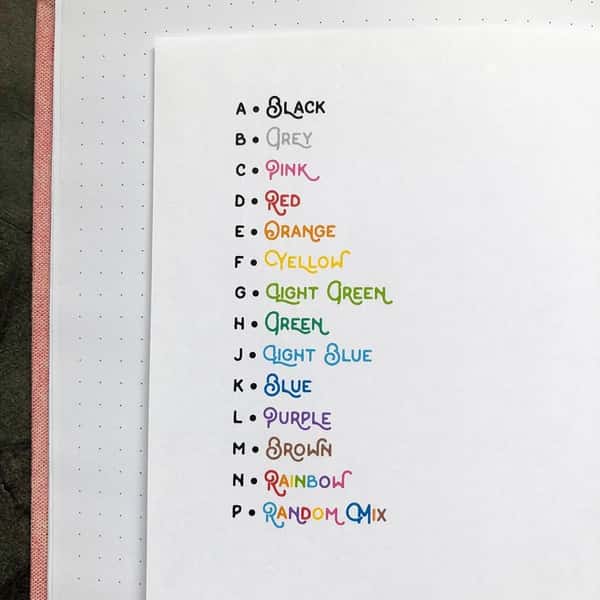 A • Black
B • Grey
C • Pink
D • Red
E • Orange
F • Yellow
G • Light Green
H • Green
J • Light Blue
K • Blue
L • Purple
M • Brown
N • Rainbow
P • Random Mix